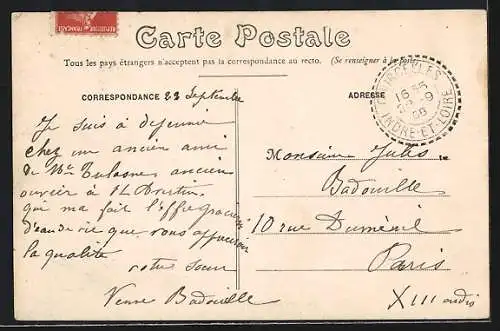 Carte Postale
Tous les pays étrangers n'acceptent pas la correspondance au recto. (Se renseigner à la
CORRESPONDANCE 23 Septembre
ADRESSE
16 55
-9
08
INDRE-ET-LOIRE
Je suis à dejeuner
chez un ancien ami
de Mr ancien
ouvrier à
qui ma fait
d'eau de vie que vous
la qualité
votre soeur
Veuve Badouille
Monsieur Jules
Badouille
10 rue Duménil
Paris
XIII